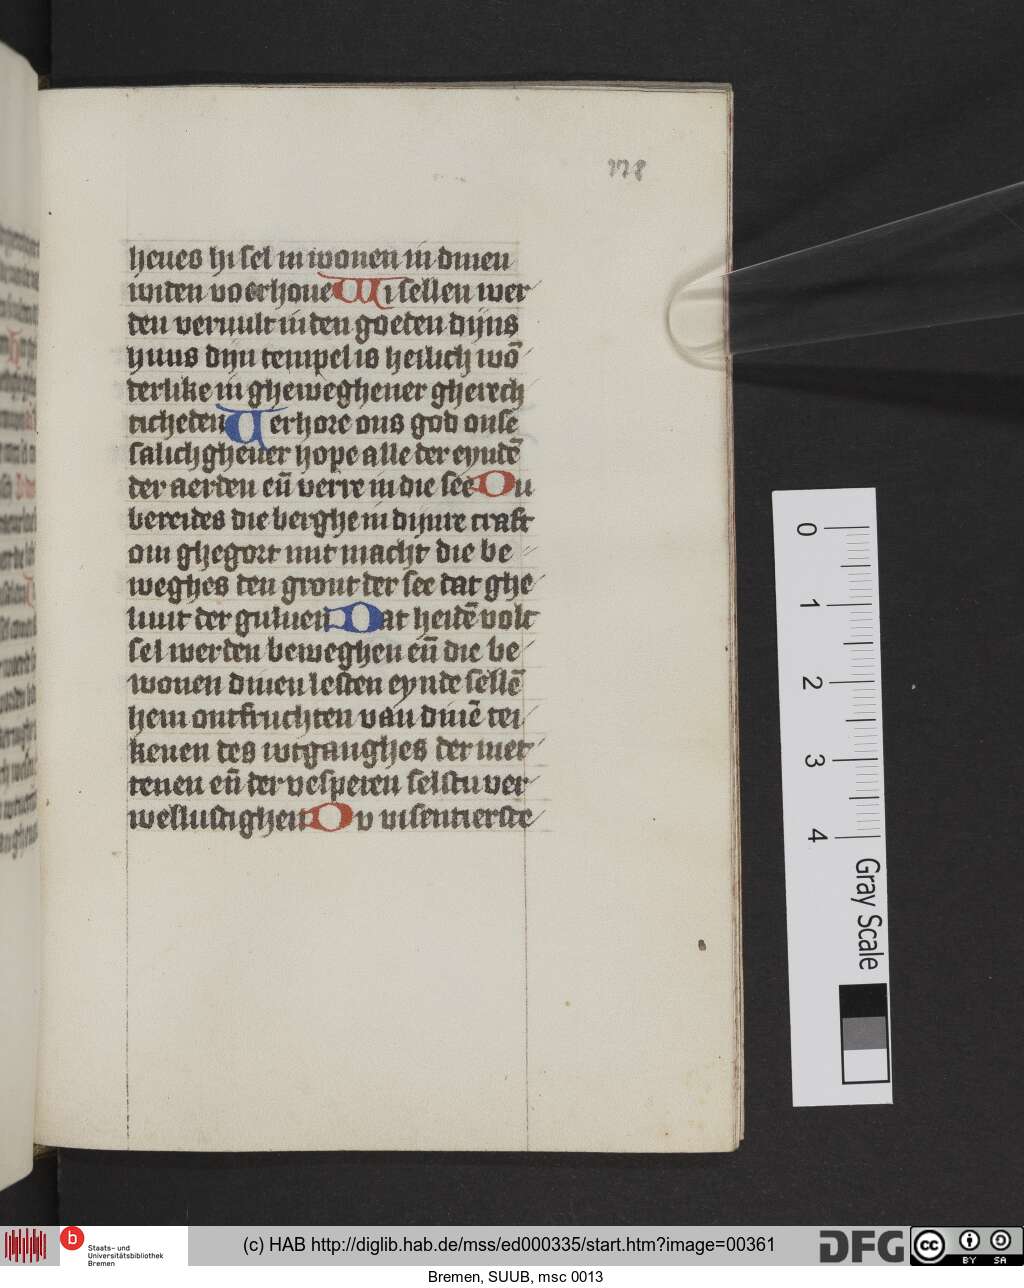 178
heues hi sel in wonen in dinen
uuten voerhoue Wi sellen wer
den veruult in den goeden dijns
huus dijn tempel is heilich wō
derlike in gheweghener gherech
ticheden Uerhore ons god onse
salichgheuer hope alle der eyndē
der aerden en̄ verre in die see Du
bereides die berghe in dijnre craft
om ghegort mit macht die be
weghes den gront der see dat ghe
luut der guluen Dat heidē volc
sel werden beweghen en̄ die be
wonen dinen lesten eynde sellē
hem ontfruchten van dinē tei
kenen des wtganghes der met
tenen en̄ der vesperen selstu ver
wellustighen Du visentierste
0
1
2
3
4
Gray Scale
b
Staats- und
Universitätsbibliothek
Bremen
(c) HAB http://diglib.hab.de/mss/ed000335/start.htm?image=00361
DFG
cc
BY
SA
Bremen, SUUB, msc 0013